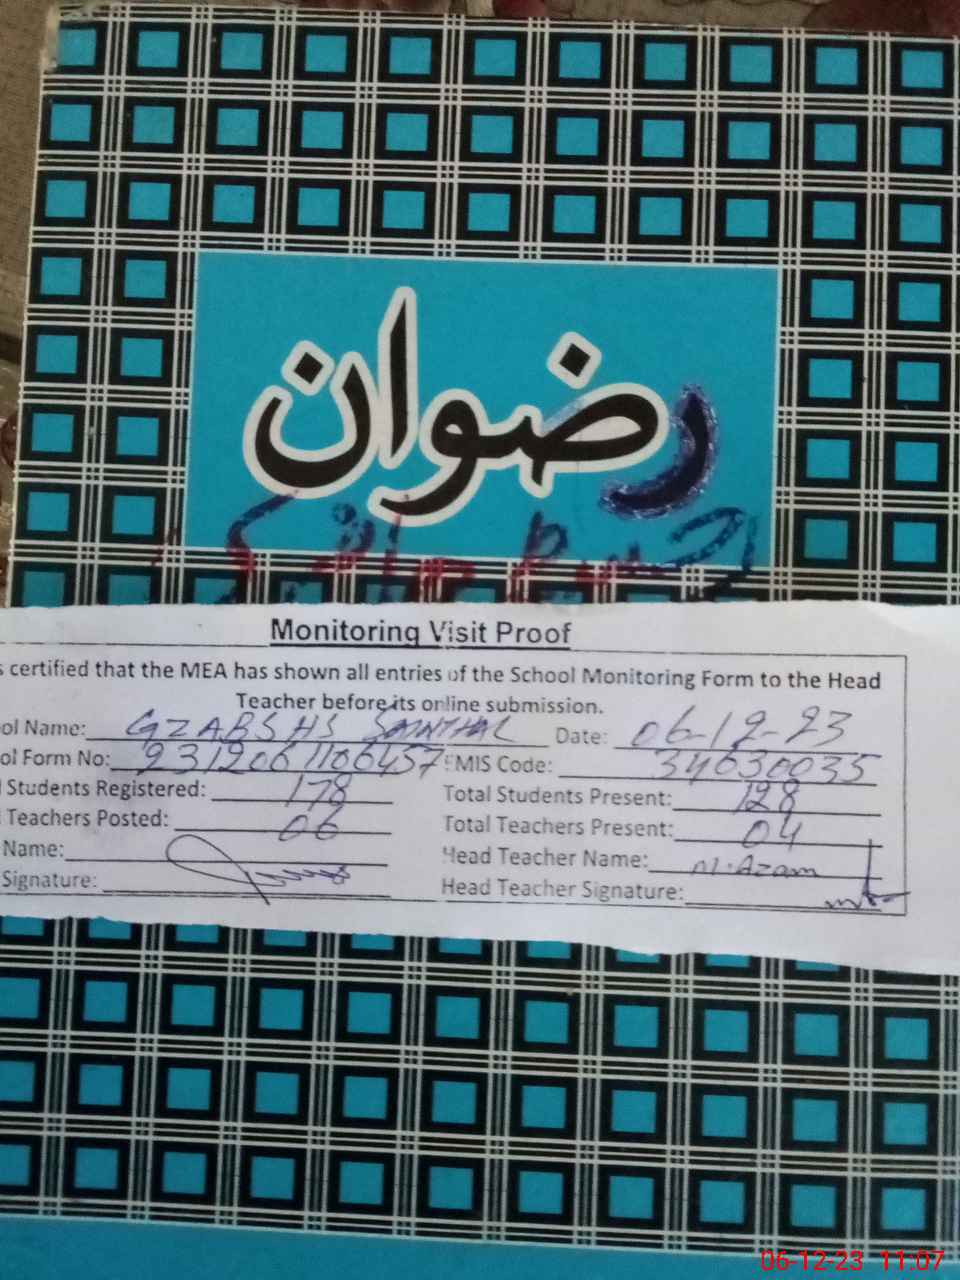 رضوان
Monitoring Visit Proof
s certified that the MEA has shown all entries of the School Monitoring Form to the Head
Teacher before its online submission.
ol Name: GZABSHS SAINTHAL Date: 06-12-23
ol Form No: 2312061106457 EMIS Code: 34630035
Students Registered: 178 Total Students Present: 128
Teachers Posted: 06 Total Teachers Present: 04
Name: Head Teacher Name: M. Azam
Signature: Head Teacher Signature:
06-12-23 11:07